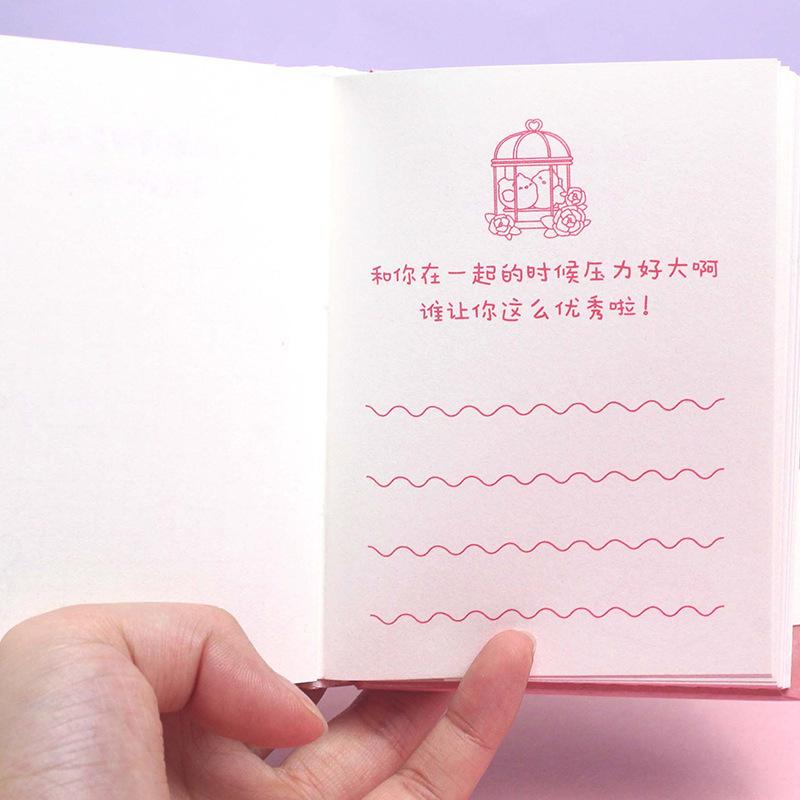 和你在一起的时候压力好大啊
谁让你这么优秀啦！